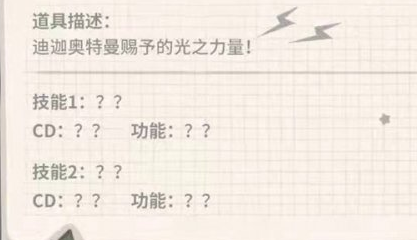 道具描述：
迪迦奥特曼赐予的光之力量！
技能1：？？
CD：？？ 功能：？？
技能2：？？
CD：？？ 功能：？？